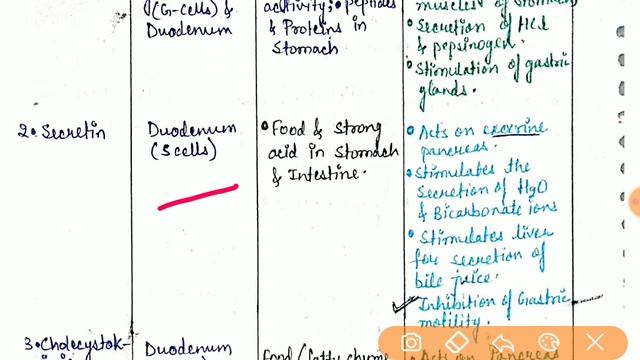 (G-cells) &
Duodenum
activity; peptides
& Proteins in
Stomach
muscles of stomach
• Secretion of HCl
& pepsinogen.
• Stimulation of gastric
glands.
2. Secretin
Duodenum
(S cells)
• Food & Strong
acid in Stomach
& Intestine.
• Acts on exocrine
pancreas.
• Stimulates the
Secretion of H2O
& Bicarbonate ions
• Stimulates liver
for secretion of
bile juice.
• Inhibition of Gastric
motility.
3. Cholecystok-
Duodenum
Food/fatty chyme
• Acts on Pancreas